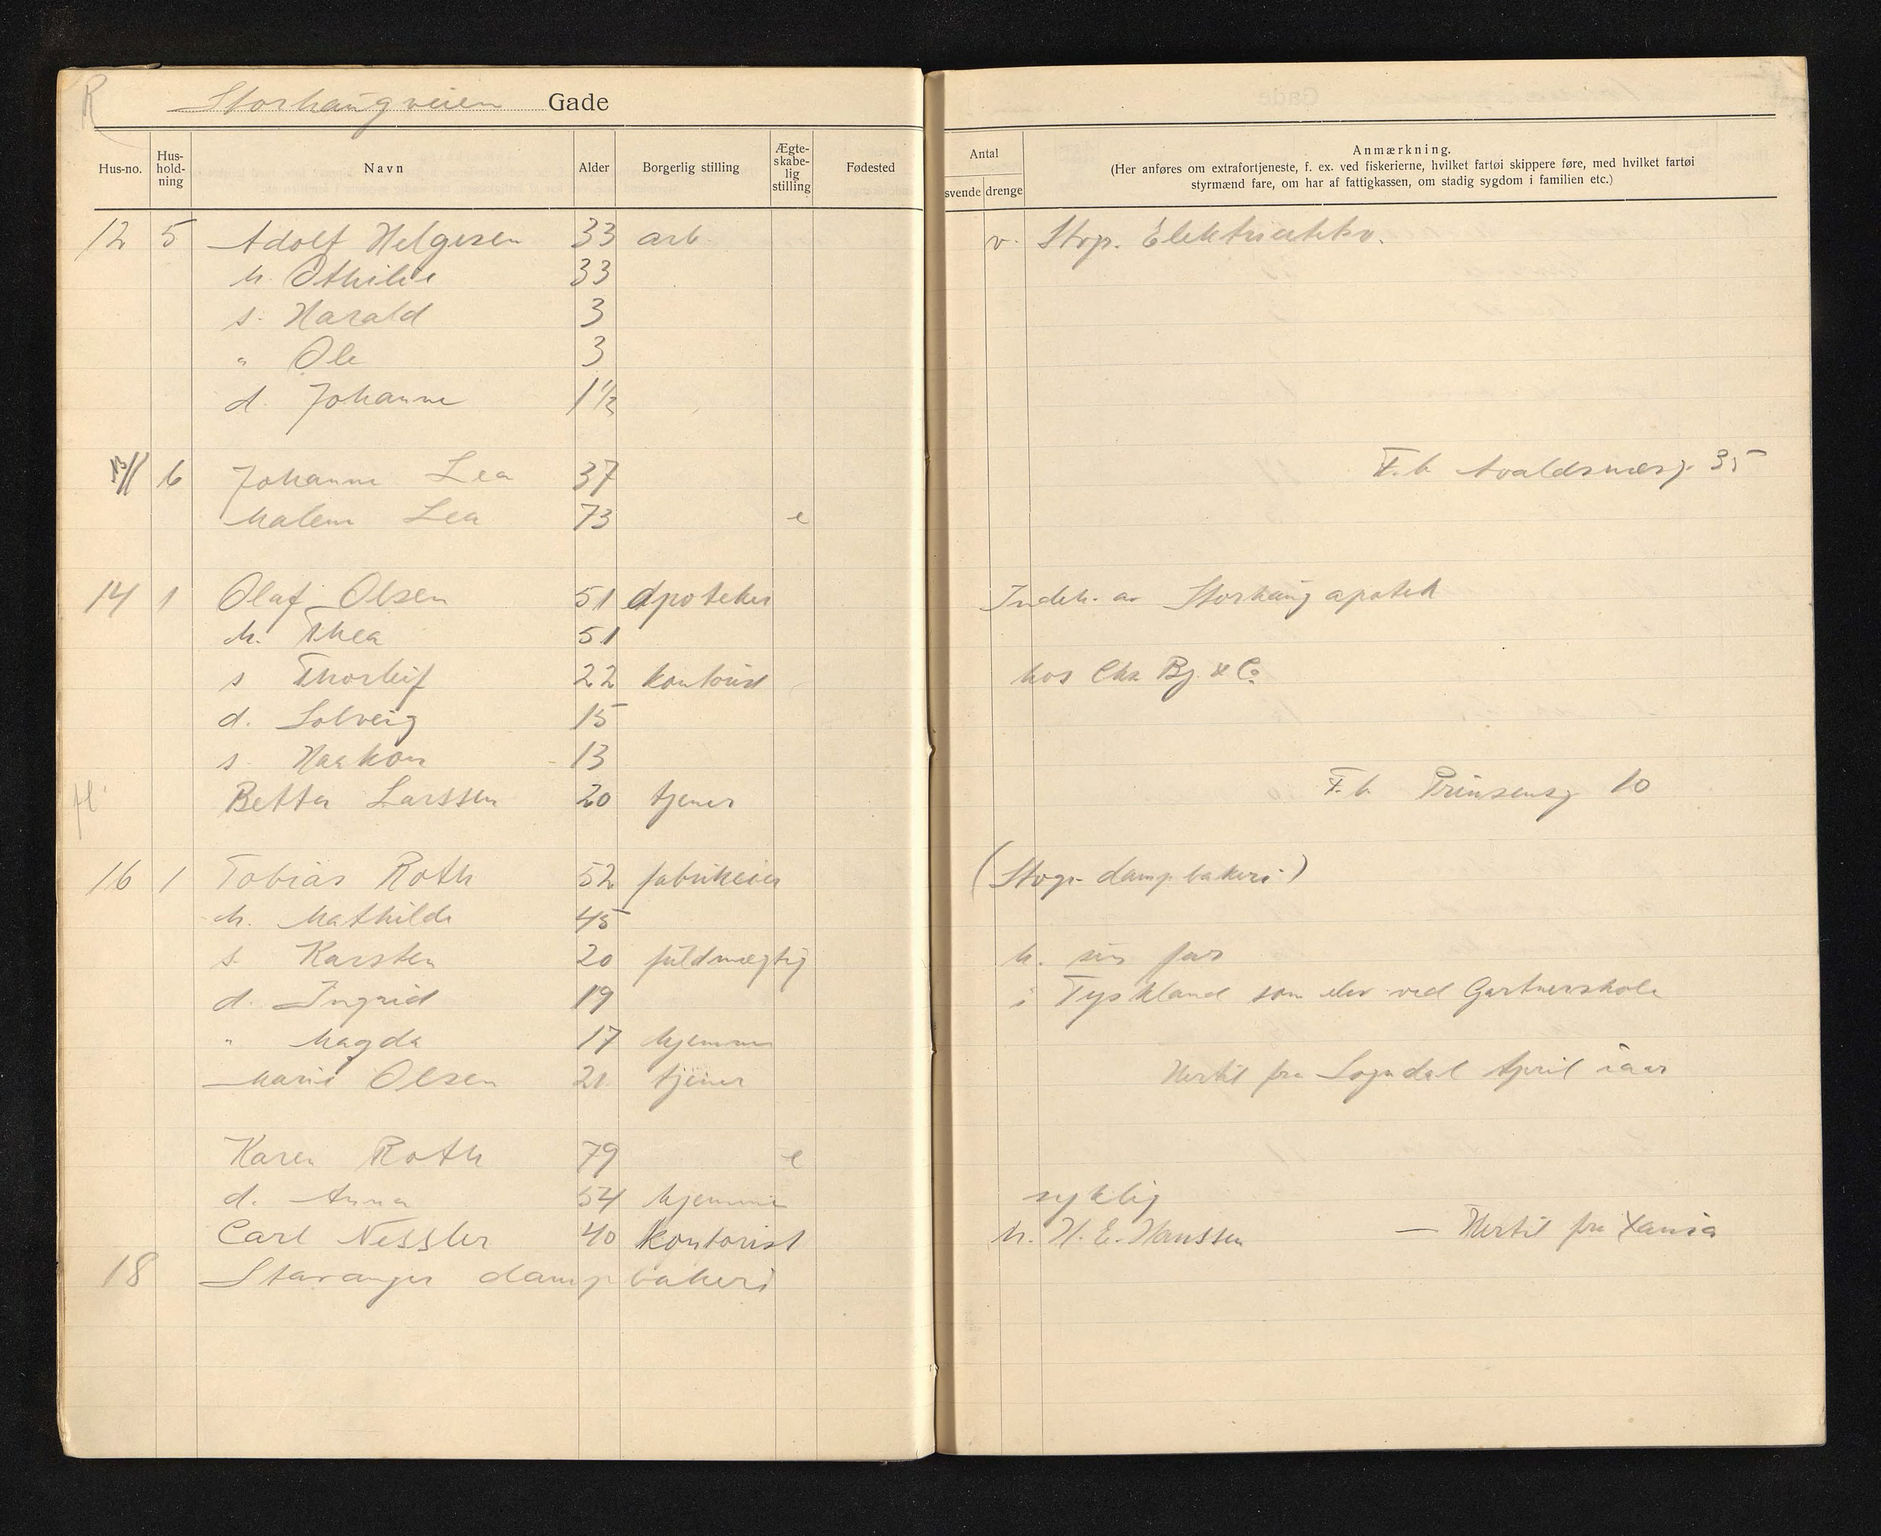 R
Storhaugveien Gade
Hus-no. Hus-hold-ning Navn Alder Borgerlig stilling Ægte-skabe-lig stilling Fødested Antal svende drenge Anmærkning.
(Her anføres om extrafortjeneste, f. ex. ved fiskerierne, hvilket fartøi skippere føre, med hvilket fartøi
styrmænd fare, om har af fattigkassen, om stadig sygdom i familien etc.)
12 5 Adolf Helgesen 33 arb. v. Stvgr. Elektricitetsv.
h. Othilie 33
s. Harald 3
" Ole 3
d. Johanne 1½
6 Johanne Lea 37 F. b. Avaldsnæsg. 35
Malene Lea 73 e
14 1 Olaf Olsen 51 apoteker Indeh. av Storhaug apotek
h. Thea 51
s Thorleif 22 kontorist hos Chr. Bj. & Co
d. Solveig 15
s. Haakon 13
Betta Larssen 20 tjener F. b. Prinsensg 10
16 1 Tobias Roth 52 fabrikeier (Stvgr. dampbakeri)
h. Mathilde 45
s. Karsten 20 fuldmægtig h. sin far
d. Ingrid 19 i Tyskland som elev ved Gartnerskole
" Magda 17 hjemme
Marie Olsen 21 tjener Hertil fra Sogndal April iaar
Karen Roth 79 e
d. Anna 54 hjemme syklig
Carl Nessler 40 kontorist h. H. E. Hanssen — Hertil fra Xania
18 Stavanger dampbakeri